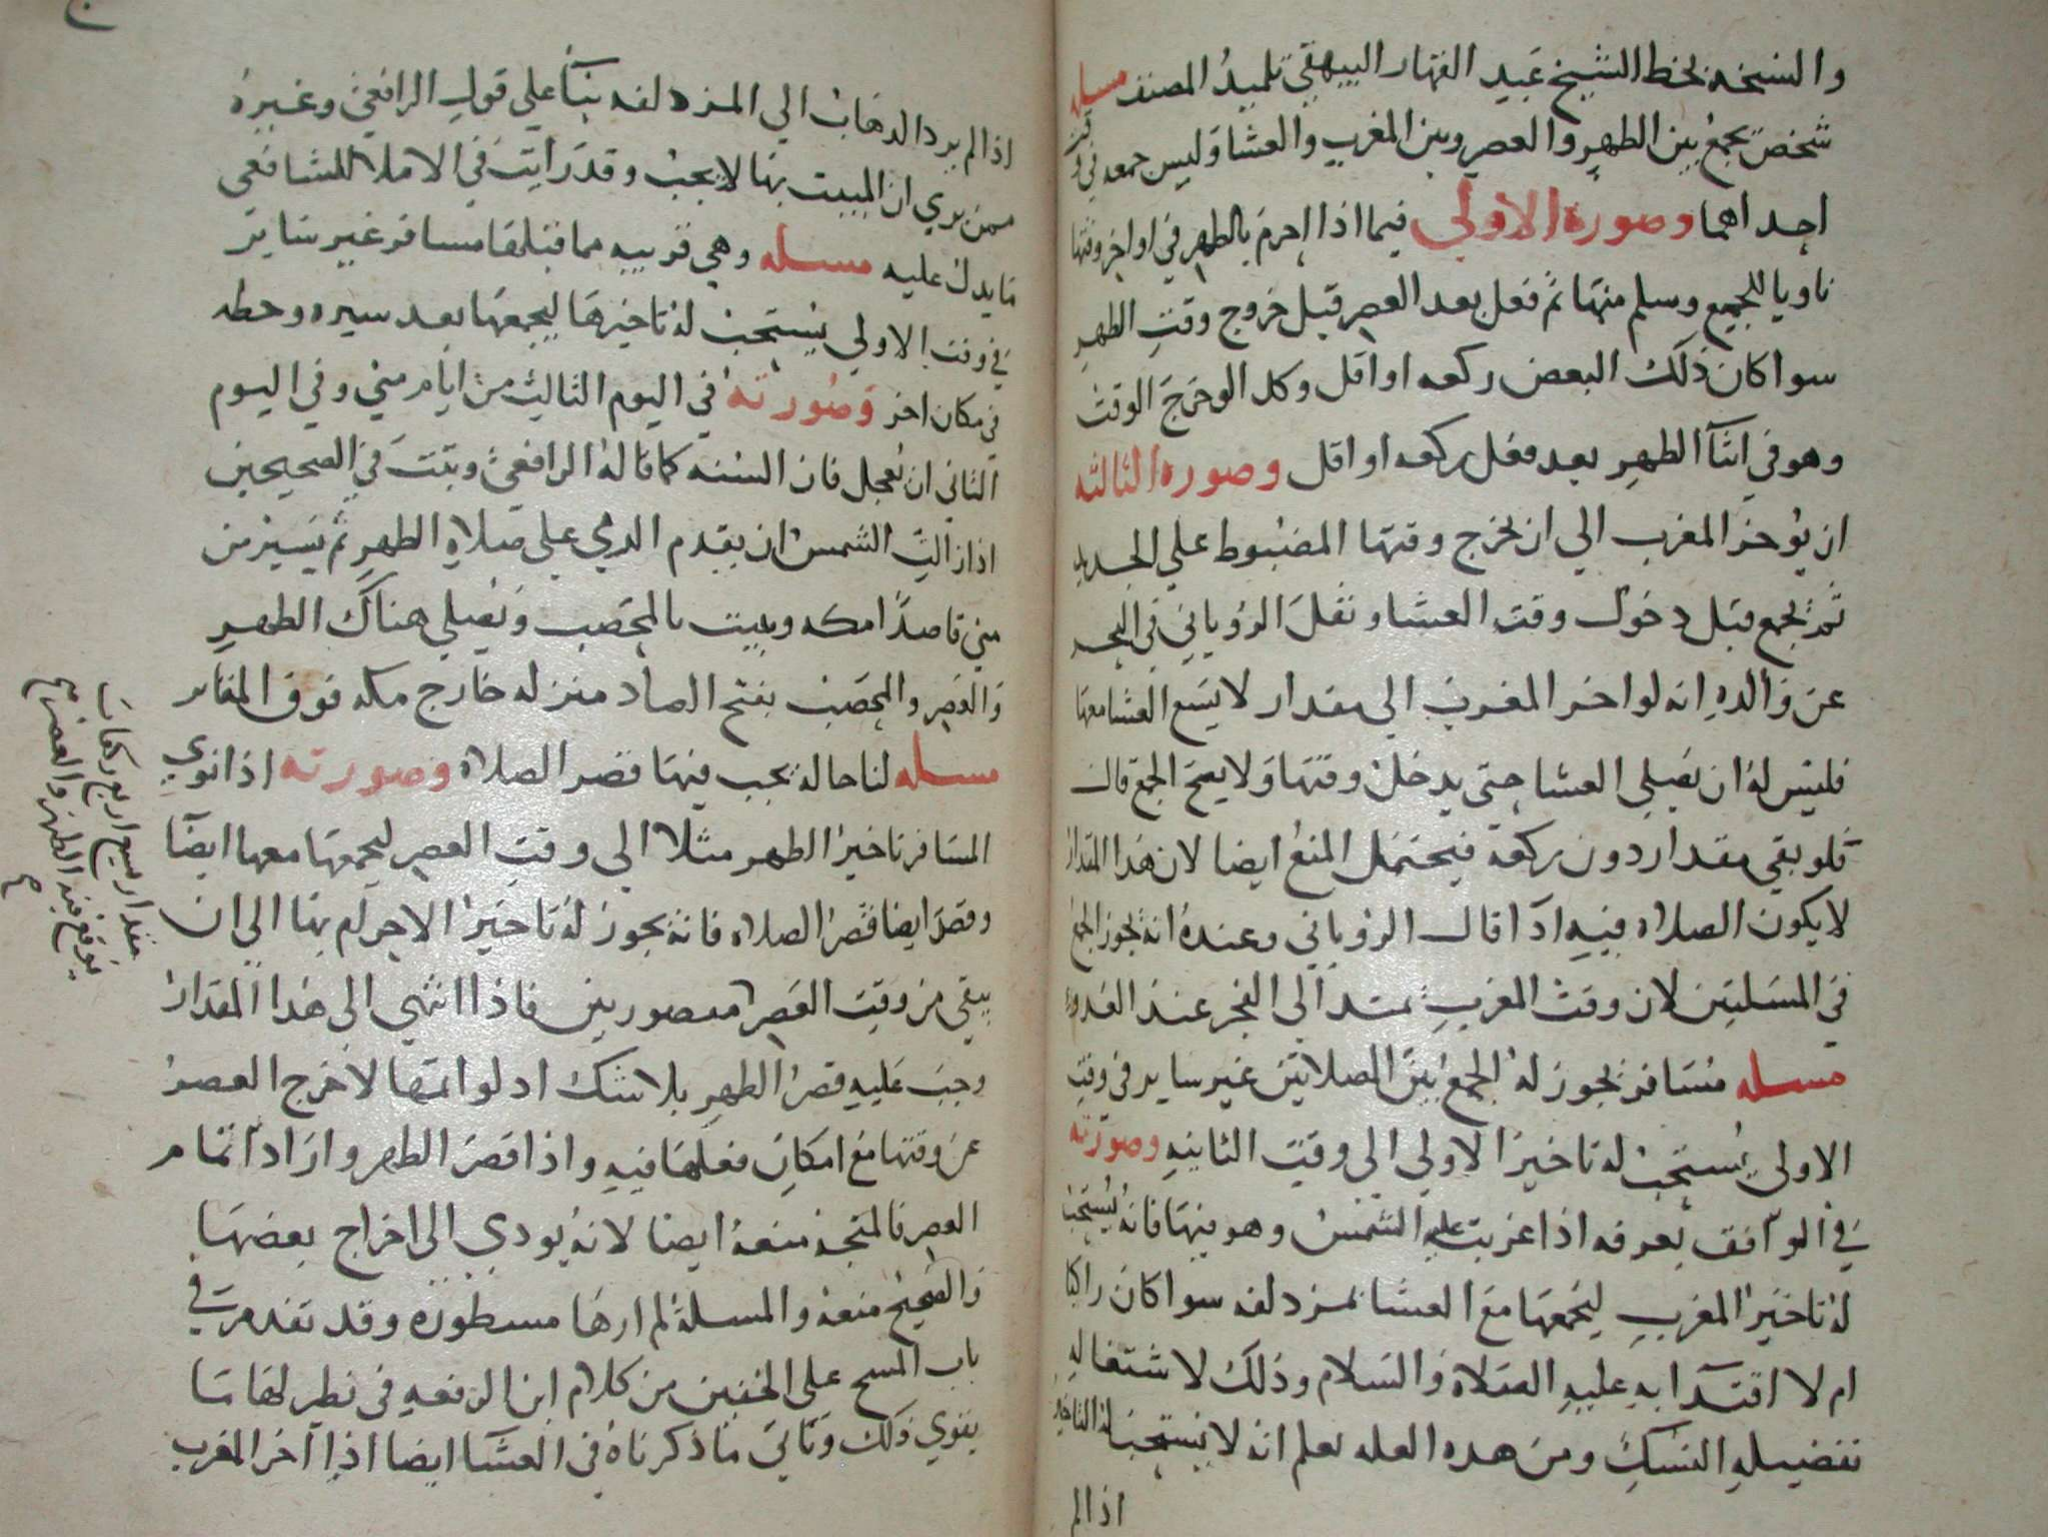 والنسخة بخط الشيخ عبيد القهار البيهقي تلميذ المصنف مسله
شخص يجمع بين الظهر والعصر وبين المغرب والعشا وليس جمعه في وقت
احداهما وصورة الاولى فيما اذا احرم بالظهر في اواخر وقتها
ناويا للجمع وسلم منها ثم فعل بعد العصر قبل خروج وقت الظهر
سوا كان ذلك البعض ركعه او اقل وكذا لو خرج الوقت
وهو في اثنآ الظهر بعد فعل ركعه او اقل وصورة الثالثه
ان يؤخر المغرب الي ان يخرج وقتها المضبوط علي الجديد
ثم يجمع قبل دخول وقت العشا ونقل الروياني في البحر
عن والده انه لو اخر المغرب الي مقدار لا يسع العشا معها
فليس له ان يصلي العشا حتى يدخل وقتها ولا يصح الجمع قال
فلو بقي مقدار دون ركعة فيحتمل المنع ايضا لان هذا المقدار
لا يكون الصلاه فيه ادآ قال الروياني وعنده انه يجوز الجمع
في المسلتين لان وقت المغرب يمتد الى الفجر عند العذر
مسله مسافر يجوز له الجمع بين الصلاتين غير ساير في وقت
الاولى يستحب له تاخير الاولي الى وقت الثانيه وصورته
في الواقف بعرفه اذا غربت عليه الشمس وهو فيها فانه يستحب
له تاخير المغرب ليجمعها مع العشا بمزدلفه سوا كان راكبا
ام لا اقتدآ به عليه الصلاة والسلام وذلك لاشتغاله
بفضيله النسك ومن هذه العله يعلم انه لا يستحب له التاخير
اذا لم
اذا لم يرد الدهاب الي المزدلفه بنآ علي قول الرافعي وغيره
ممن يري ان المبيت بها لا يجب وقد رايت في الاملا للشافعي
ما يدل عليه مسله وهي قريبه مما قبلها مسافر غير ساير
في وقت الاولي يستحب له تاخيرها ليجمعها بعد سيره وحطه
في مكان اخر وصورته في اليوم الثالث من ايام مني وفي اليوم
الثاني ان تعجل فان السنه كما قاله الرافعي وثبت في الصحيحين
اذا زالت الشمس ان يقدم الرمي علي صلاة الظهر ثم يسير من
مني قاصدا مكه ويبيت بالمحصب ويصلي هناك الظهر
والعصر والمحصب بفتح الصاد منزله خارج مكه فوق المقابر
مسله لنا حالة يجب فيها قصر الصلاه وصورته اذا نوي
المسافر تاخير الظهر مثلا الى وقت العصر ليجمعها معها ايضآ
وقصد ايضا قصر الصلاه فانه يجوز له تاخير الاحرام بها الي ان
يبقي من وقت العصر مقصورتين فاذا انتهي الى هذا المقدار
وجب عليه قصر الظهر بلا شك اد لو اتمها لاخرج العصر
عن وقتها مع امكان فعلها فيه واذا قصر الظهر واراد اتمام
العصر فالمتجه منعه ايضا لانه يودي الى اخراج بعضها
والصحيح منعه والمسله لم ارها مسطوره وقد تقدم في
باب المسح علي الخفين من كلام ابن الرفعه في نظير لها ما
يقوي ذلك وتاتي ما ذكرناه في العشآ ايضا اذا اخر المغرب
مقدار يسع اربع ركعات
يوقع فيه الظهر والعصر صح